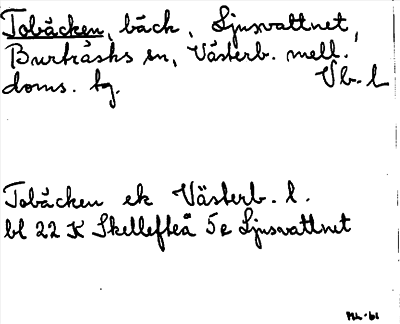 Tobäcken, bäck, Ljusvattnet,
Burträsks sn, Västerb. mell.
doms. tg. Vb. l
Tobäcken ek Västerb. l.
bl 22 K Skellefteå 5e Ljusvattnet